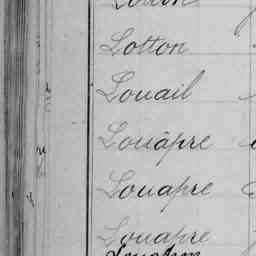 Lotton
Louail
Louâpre
Louapre
Louapre